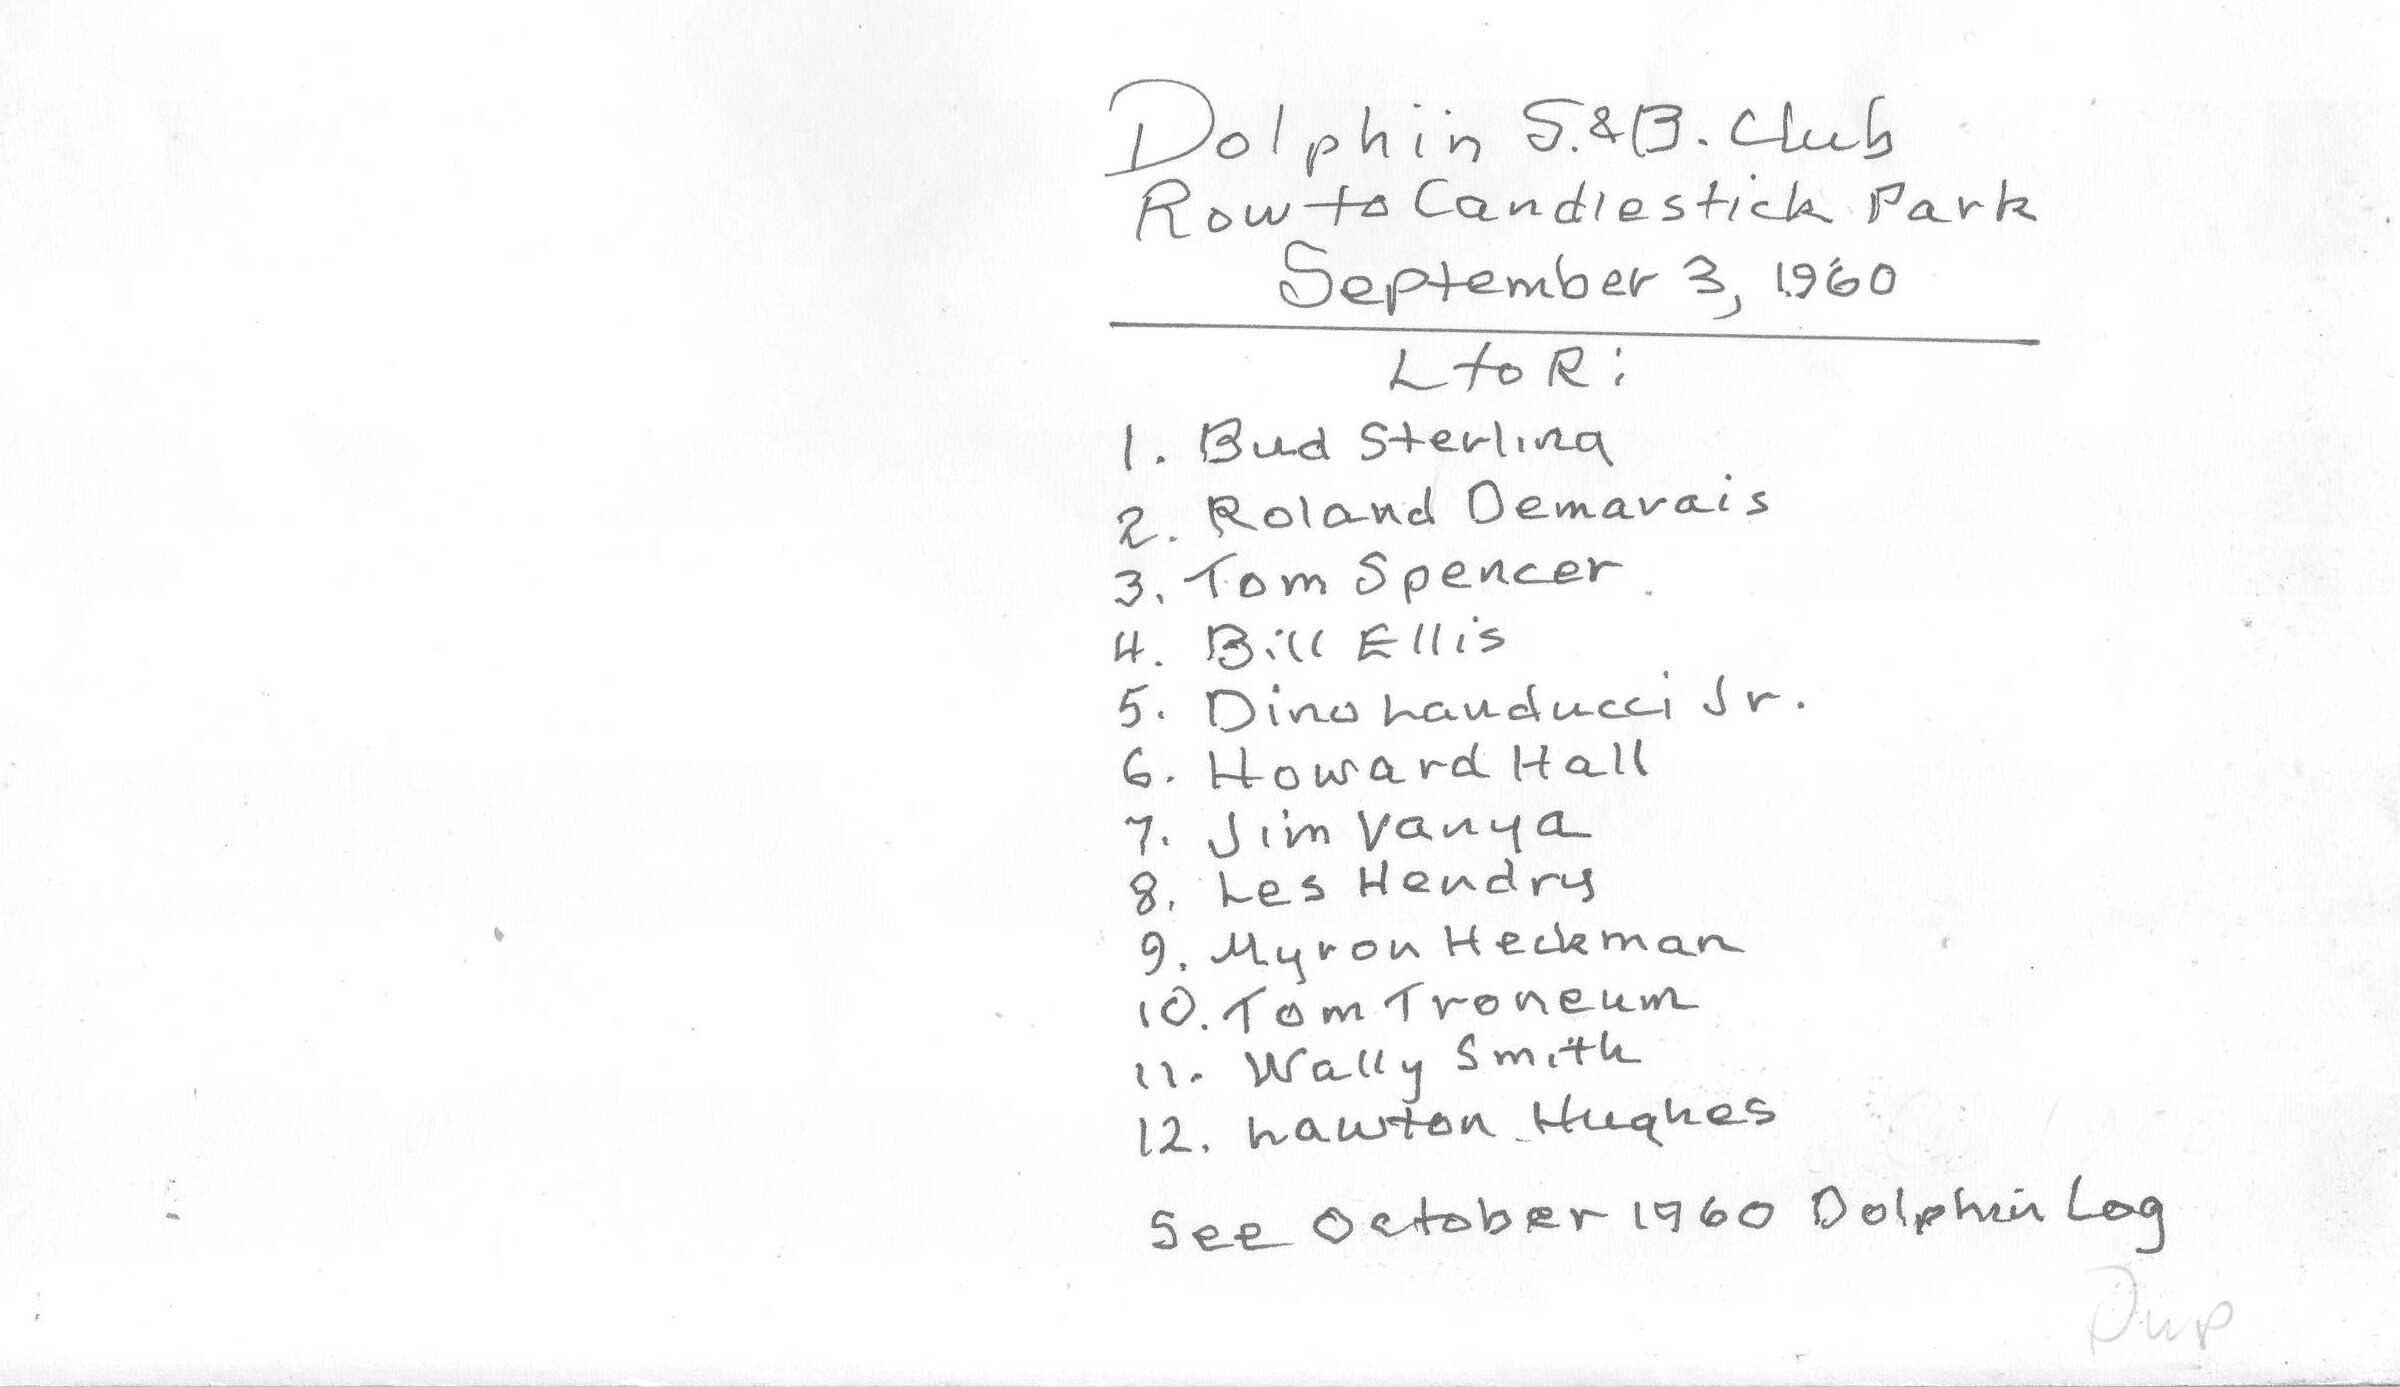 Dolphin S.&B. Club
Row to Candlestick Park
September 3, 1960
L to R:
1. Bud Sterling
2. Roland Demarais
3. Tom Spencer
4. Bill Ellis
5. Dino Landucci Jr.
6. Howard Hall
7. Jim Vanya
8. Les Hendry
9. Myron Heckman
10. Tom Troneum
11. Wally Smith
12. Lawton Hughes
See October 1960 Dolphin Log
Dup